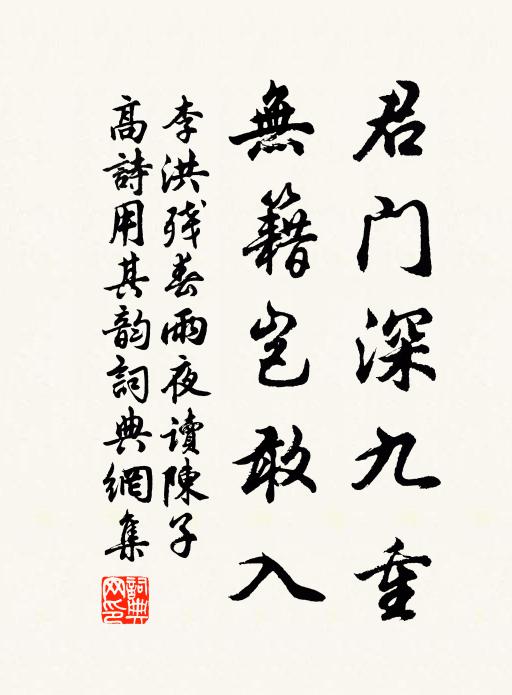 君门深九重
無籍岂敢入
李洪残春雨夜讀陳子
高詩用其韵詞典網集
詞典网印